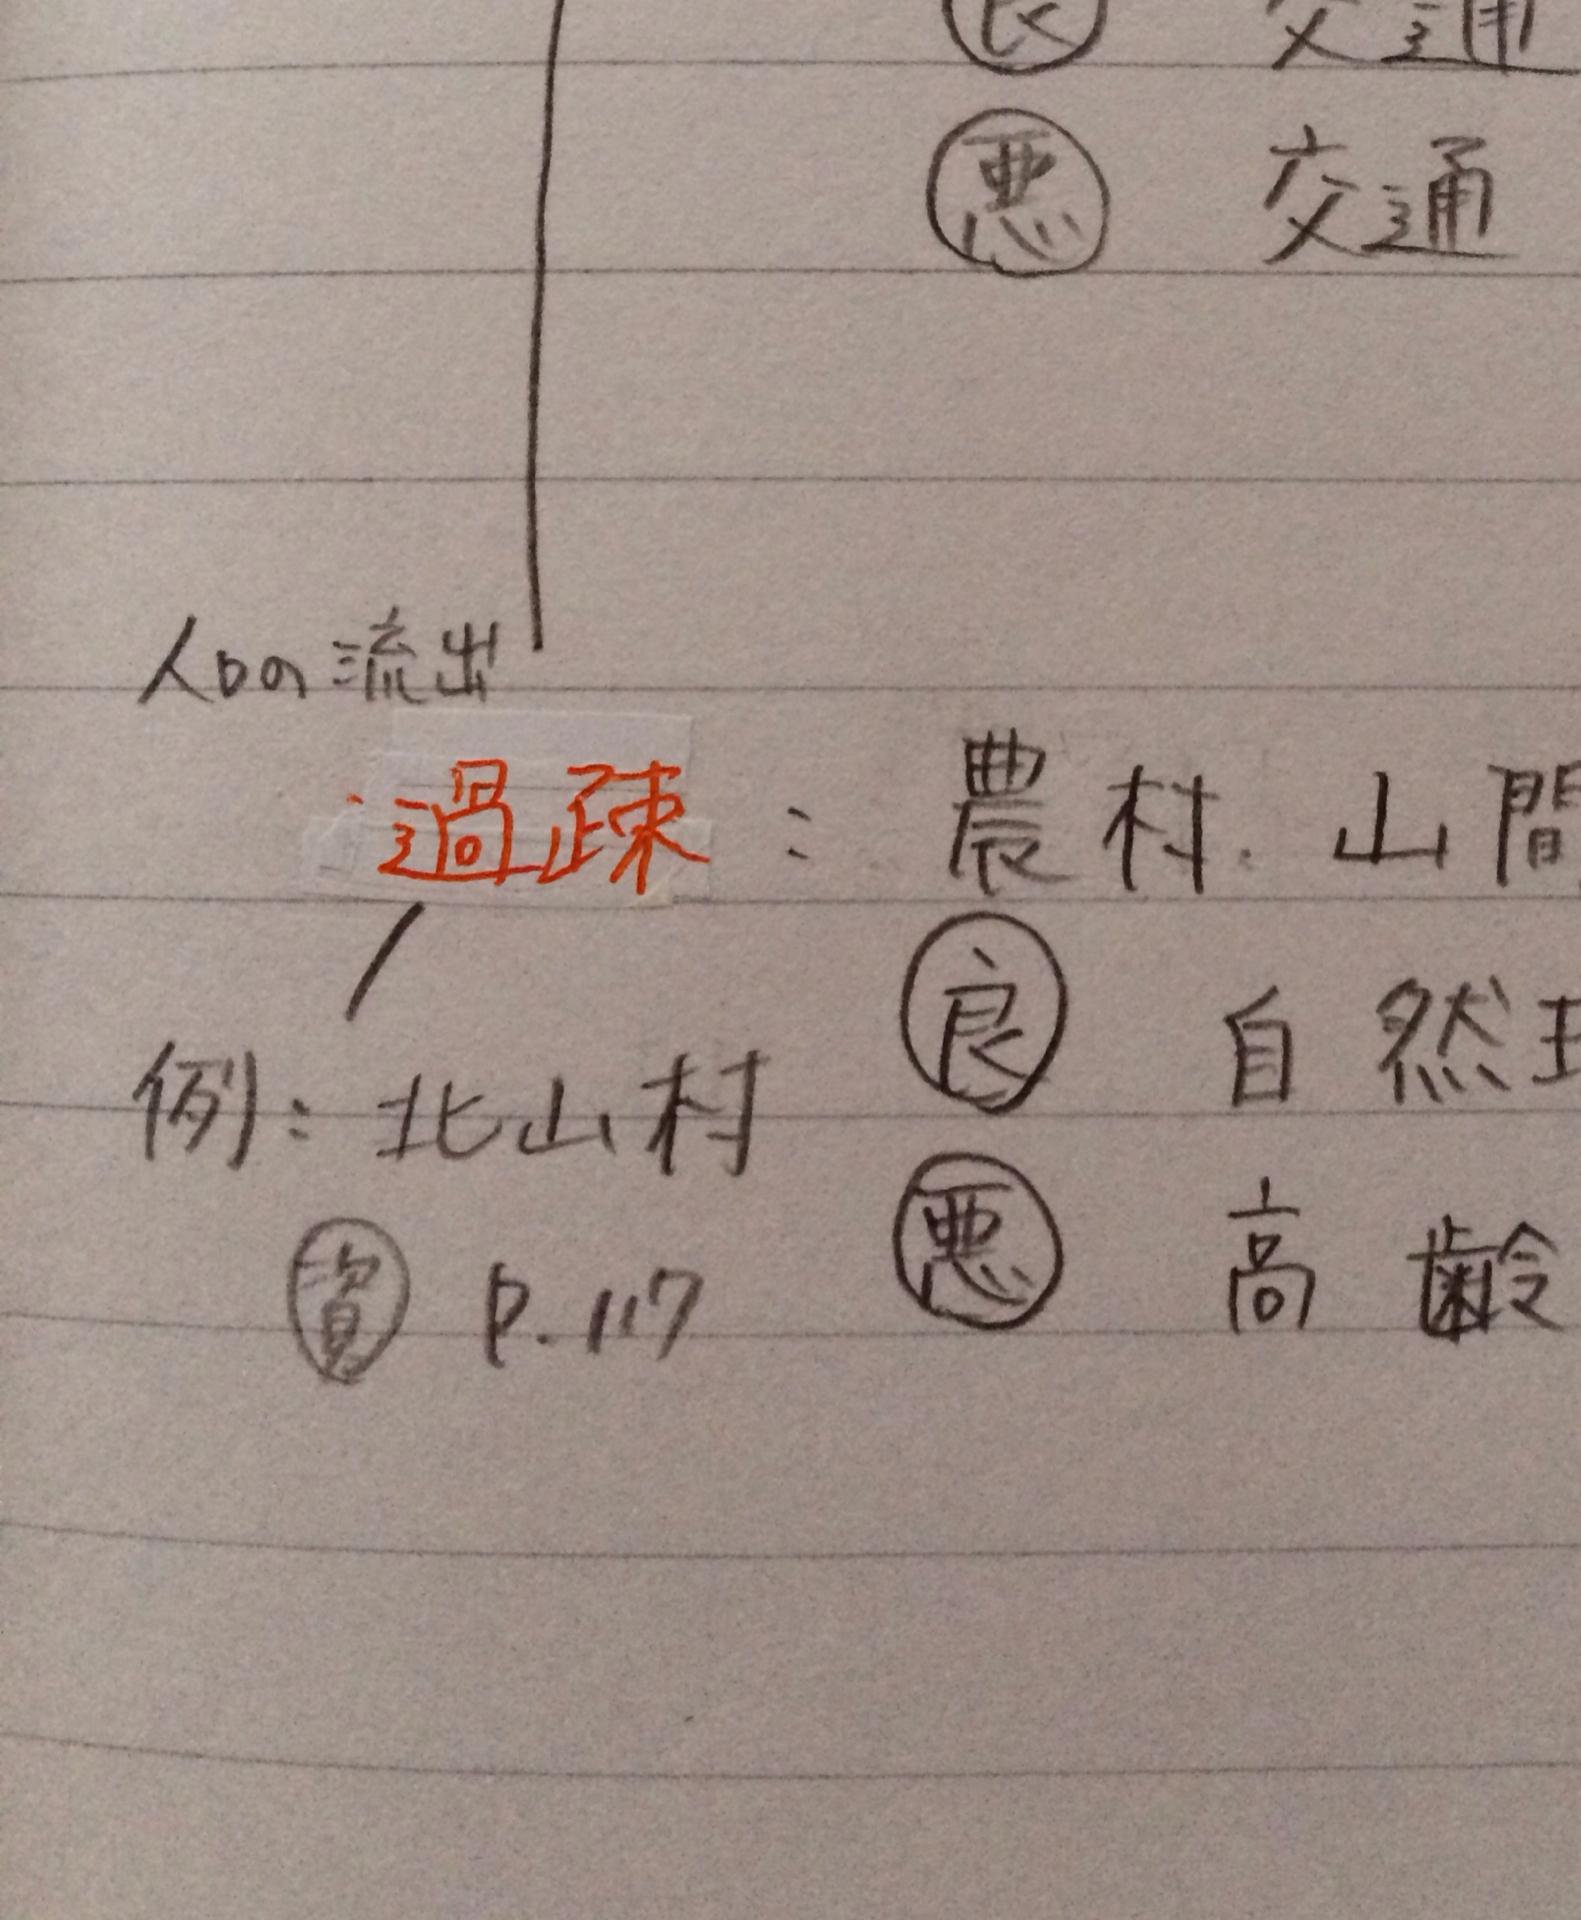 良 交通
悪 交通
人口の流出
過疎：農村、山間
良 自然
例：北山村
悪 高齢
資 P.117